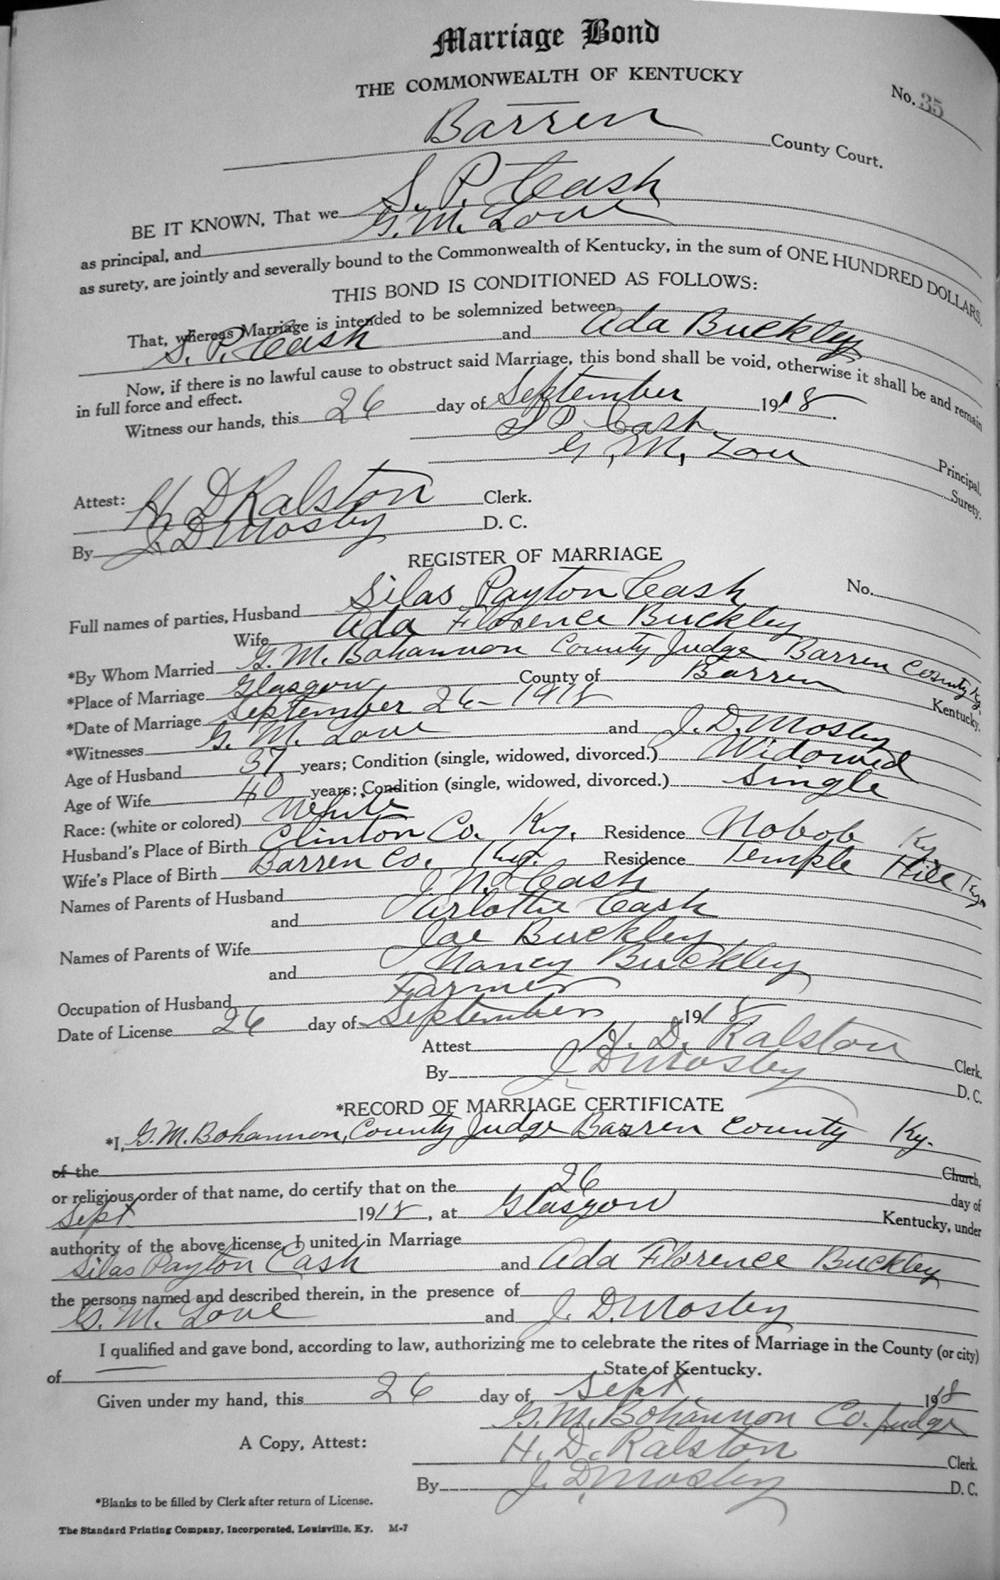 Marriage Bond
THE COMMONWEALTH OF KENTUCKY
No. 35
Barren County Court.
BE IT KNOWN, That we S. P. Cash
as principal, and G. M. Love
as surety, are jointly and severally bound to the Commonwealth of Kentucky, in the sum of ONE HUNDRED DOLLARS.
THIS BOND IS CONDITIONED AS FOLLOWS:
That, whereas Marriage is intended to be solemnized between
S. P. Cash and Ada Buckley
Now, if there is no lawful cause to obstruct said Marriage, this bond shall be void, otherwise it shall be and remain
in full force and effect.
Witness our hands, this 26 day of September 1918.
S P Cash Principal.
G. M. Love Surety.
Attest: H. D Ralston Clerk.
By J. D Mosby D. C.
REGISTER OF MARRIAGE
No.
Full names of parties, Husband Silas Payton Cash
Wife Ada Florence Buckley
*By Whom Married G. M. Bohannon County Judge Barren County Ky.
*Place of Marriage Glasgow County of Barren Kentucky.
*Date of Marriage September 26 - 1918
*Witnesses G. M. Love and J. D. Mosby
Age of Husband 57 years; Condition (single, widowed, divorced.) Widowed
Age of Wife 40 years; Condition (single, widowed, divorced.) Single
Race: (white or colored) White
Husband's Place of Birth Clinton Co. Ky. Residence Nobob Ky.
Wife's Place of Birth Barren Co. Ky. Residence Temple Hill Ky.
Names of Parents of Husband Cash
and Cash
Names of Parents of Wife Joe Buckley
and Nancy Buckley
Occupation of Husband Farmer
Date of License 26 day of September 1918
Attest H. D. Ralston Clerk.
By J. D Mosby D. C.
*RECORD OF MARRIAGE CERTIFICATE
*I, G. M. Bohannon, County Judge Barren County Ky.
of the Church,
or religious order of that name, do certify that on the 26 day of
Sept 1918, at Glasgow Kentucky, under
authority of the above license, I united in Marriage
Silas Payton Cash and Ada Florence Buckley
the persons named and described therein, in the presence of
G. M. Love and J. D. Mosby
I qualified and gave bond, according to law, authorizing me to celebrate the rites of Marriage in the County (or city)
of State of Kentucky.
Given under my hand, this 26 day of Sept 1918
G. M. Bohannon Co. Judge
A Copy, Attest: H. D. Ralston Clerk.
By J. D. Mosby D. C.
*Blanks to be filled by Clerk after return of License.
The Standard Printing Company, Incorporated, Louisville, Ky. M-7